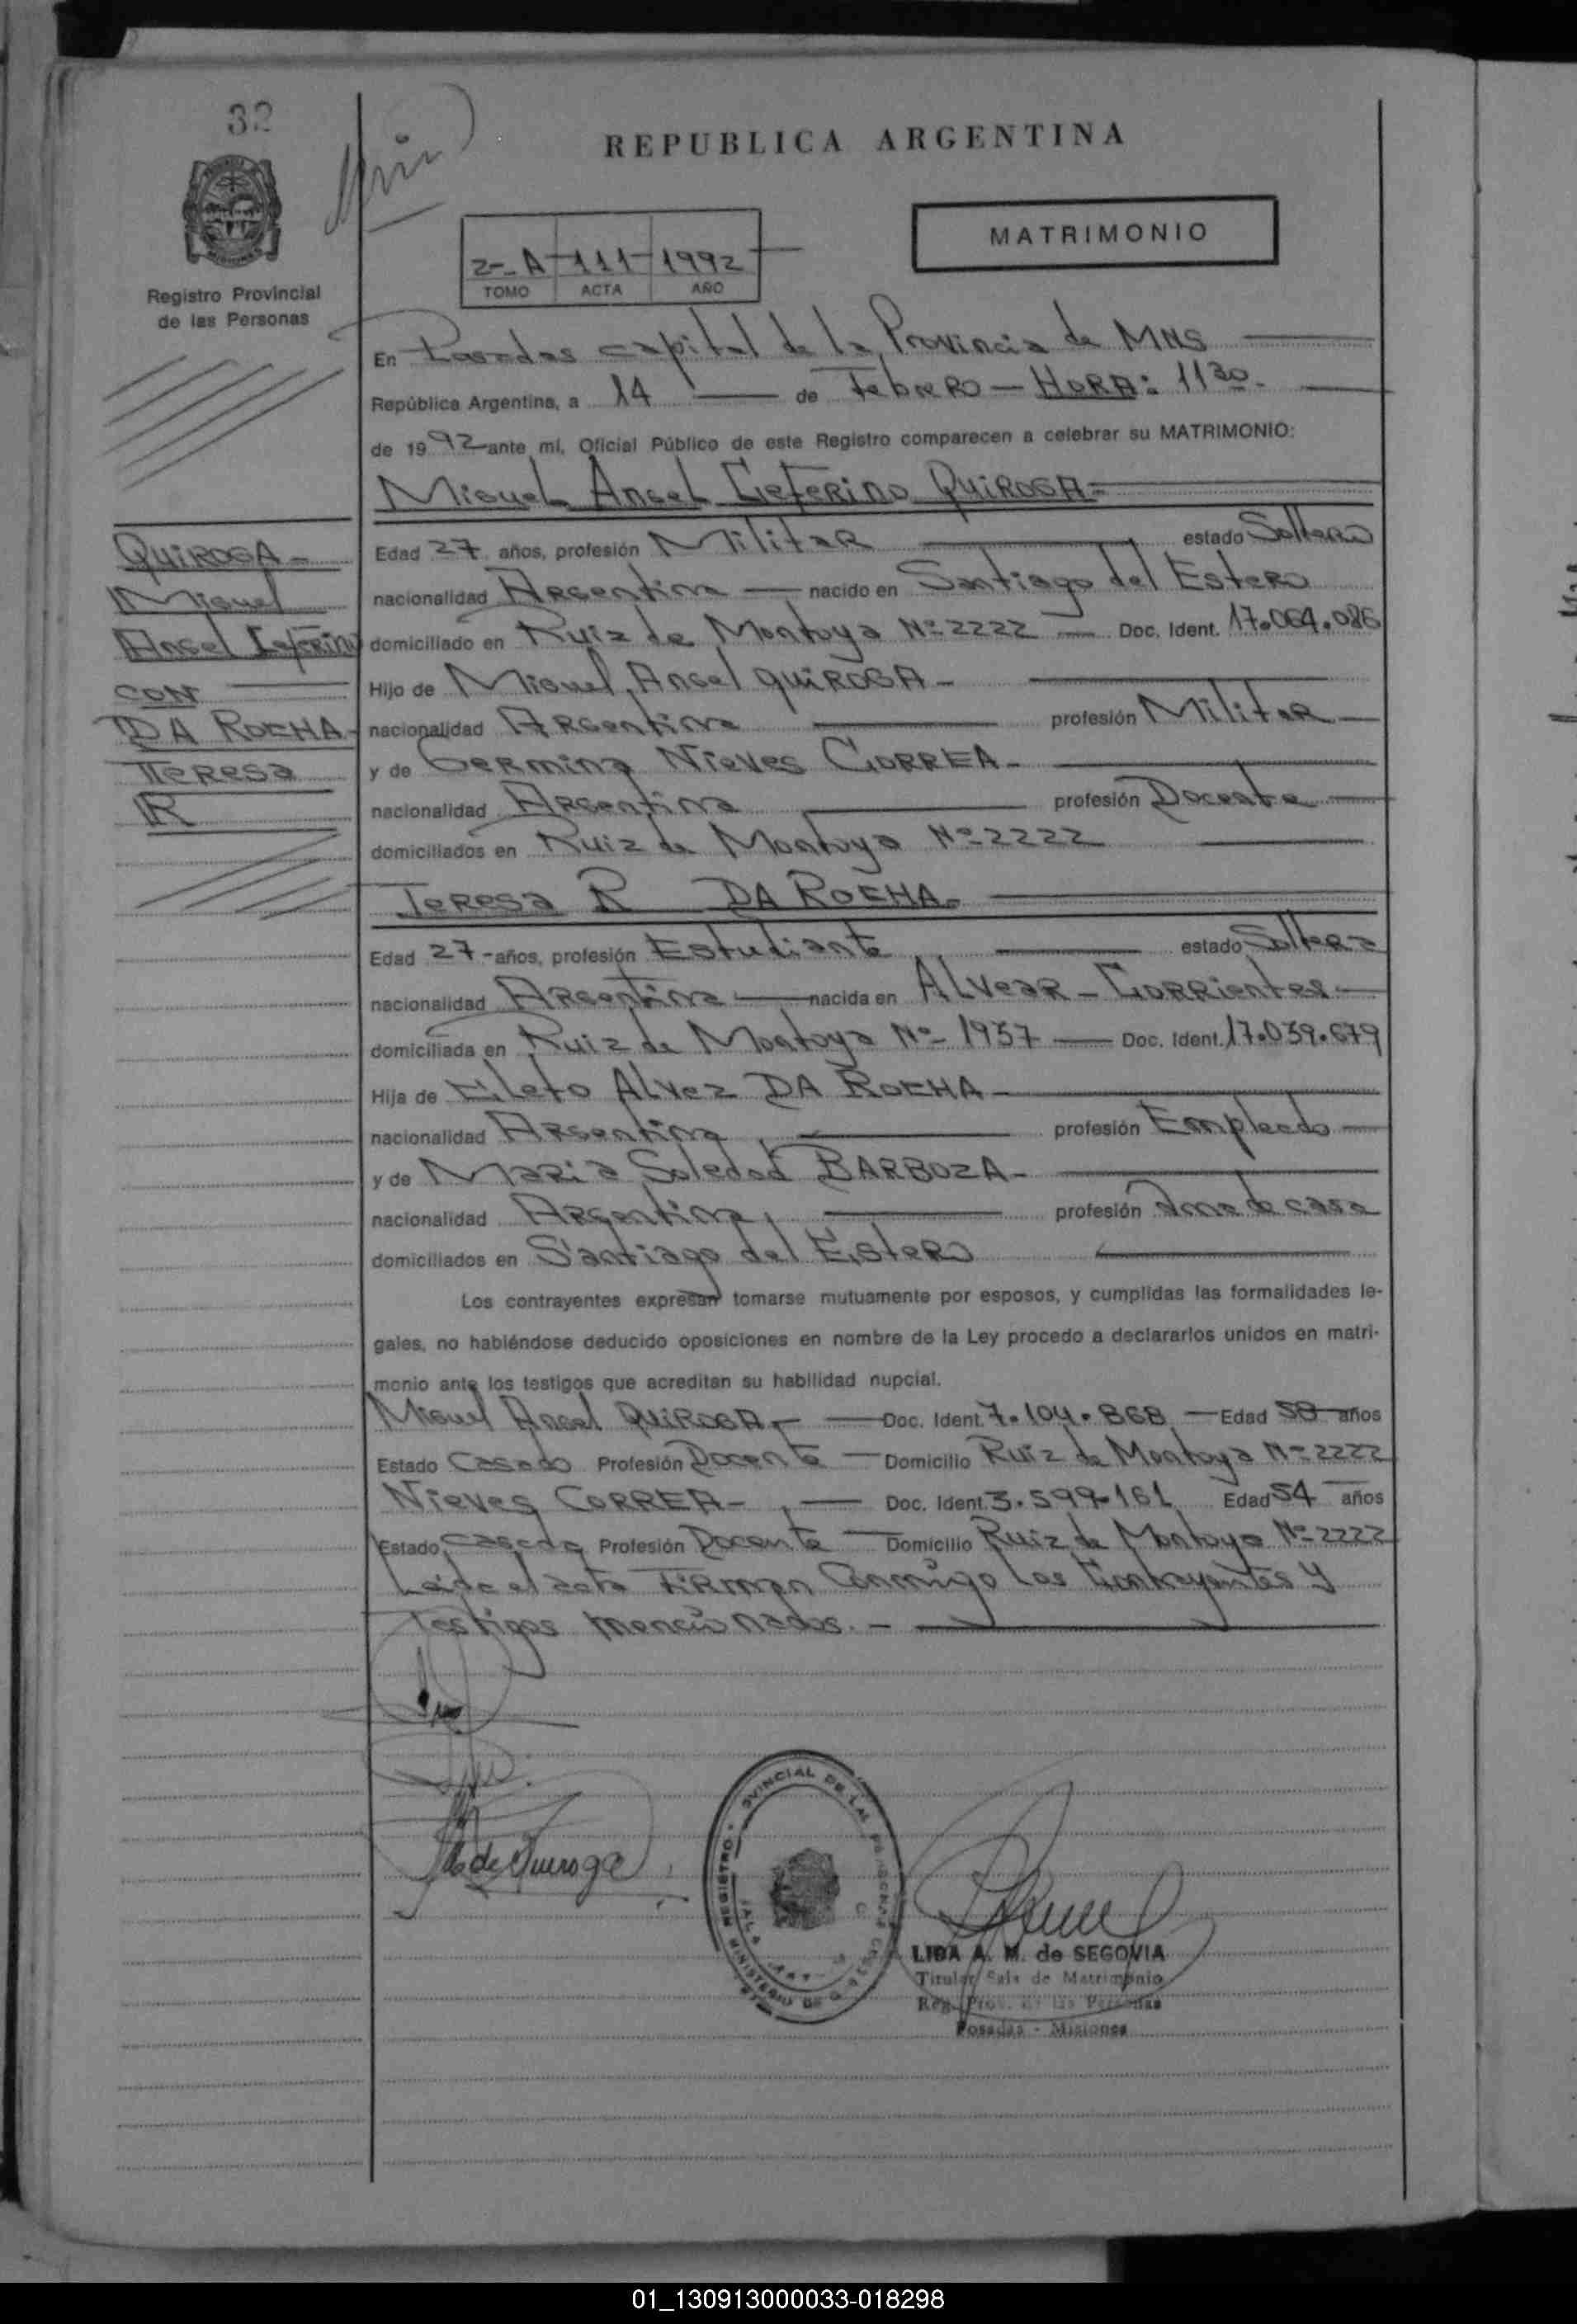 32
REPUBLICA ARGENTINA
MATRIMONIO
2-A-111-1992
TOMO ACTA AÑO
Registro Provincial
de las Personas
En Posadas capital de la Provincia de MNS
República Argentina, a 14 de Febrero - HORA: 1130.
de 1992 ante mí, Oficial Público de este Registro comparecen a celebrar su MATRIMONIO:
Miguel Angel Ceferino QUIROGA
QUIROGA
Miguel
Angel Ceferino
CON
DA ROCHA
Teresa
R
Edad 27 años, profesión Militar estado Soltero
nacionalidad Argentina nacido en Santiago del Estero
domiciliado en Ruiz de Montoya Nº 2222 Doc. Ident. 17.064.086
Hijo de Miguel Angel QUIROGA
nacionalidad Argentina profesión Militar
y de Germina Nieves CORREA
nacionalidad Argentina profesión Docente
domiciliados en Ruiz de Montoya Nº 2222
Teresa R DA ROCHA
Edad 27 - años, profesión Estudiante estado Soltera
nacionalidad Argentina nacida en Alvear - Corrientes
domiciliada en Ruiz de Montoya Nº 1937 Doc. Ident. 17.039.679
Hija de Cleto Alvez DA ROCHA
nacionalidad Argentina profesión Empleado
y de Maria Soledad BARBOZA
nacionalidad Argentina profesión Ama de casa
domiciliados en Santiago del Estero
Los contrayentes expresan tomarse mutuamente por esposos, y cumplidas las formalidades le-
gales, no habiéndose deducido oposiciones en nombre de la Ley procedo a declararlos unidos en matri-
monio ante los testigos que acreditan su habilidad nupcial.
Miguel Angel QUIROGA Doc. Ident. 7.104.868 Edad 58 años
Estado Casado Profesión Docente Domicilio Ruiz de Montoya Nº 2222
Nieves CORREA Doc. Ident. 3.599.161 Edad 54 años
Estado Casada Profesión Docente Domicilio Ruiz de Montoya Nº 2222
Leida el acta Firman Conmigo los Contrayentes y
testigos mencionados.
de Quiroga
REGISTRO PROVINCIAL DE LAS
MINISTERIO DE
LIDA A. M. de SEGOVIA
Titular Sala de Matrimonio
Reg. Prov. de las Personas
Posadas - Misiones
01_130913000033-018298